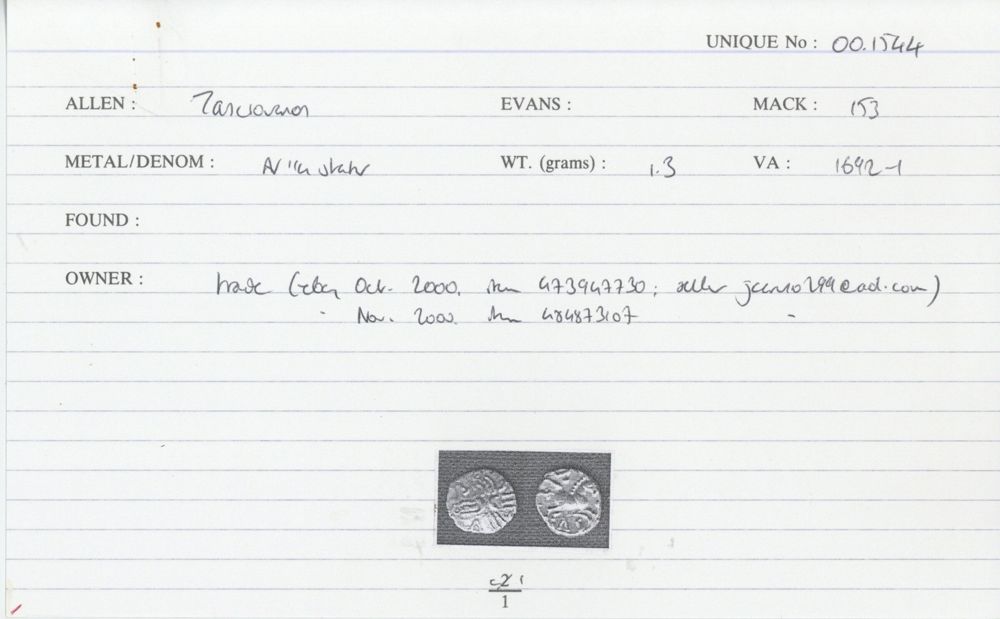 UNIQUE No : 00.1544
ALLEN : Tasciovanos EVANS : MACK : 153
METAL/DENOM : WT. (grams) : 1.3 VA : 1692-1
FOUND :
OWNER : trade (eBay Oct. 2000, item 473947730; seller
Nov. 2000. item 484873107
1